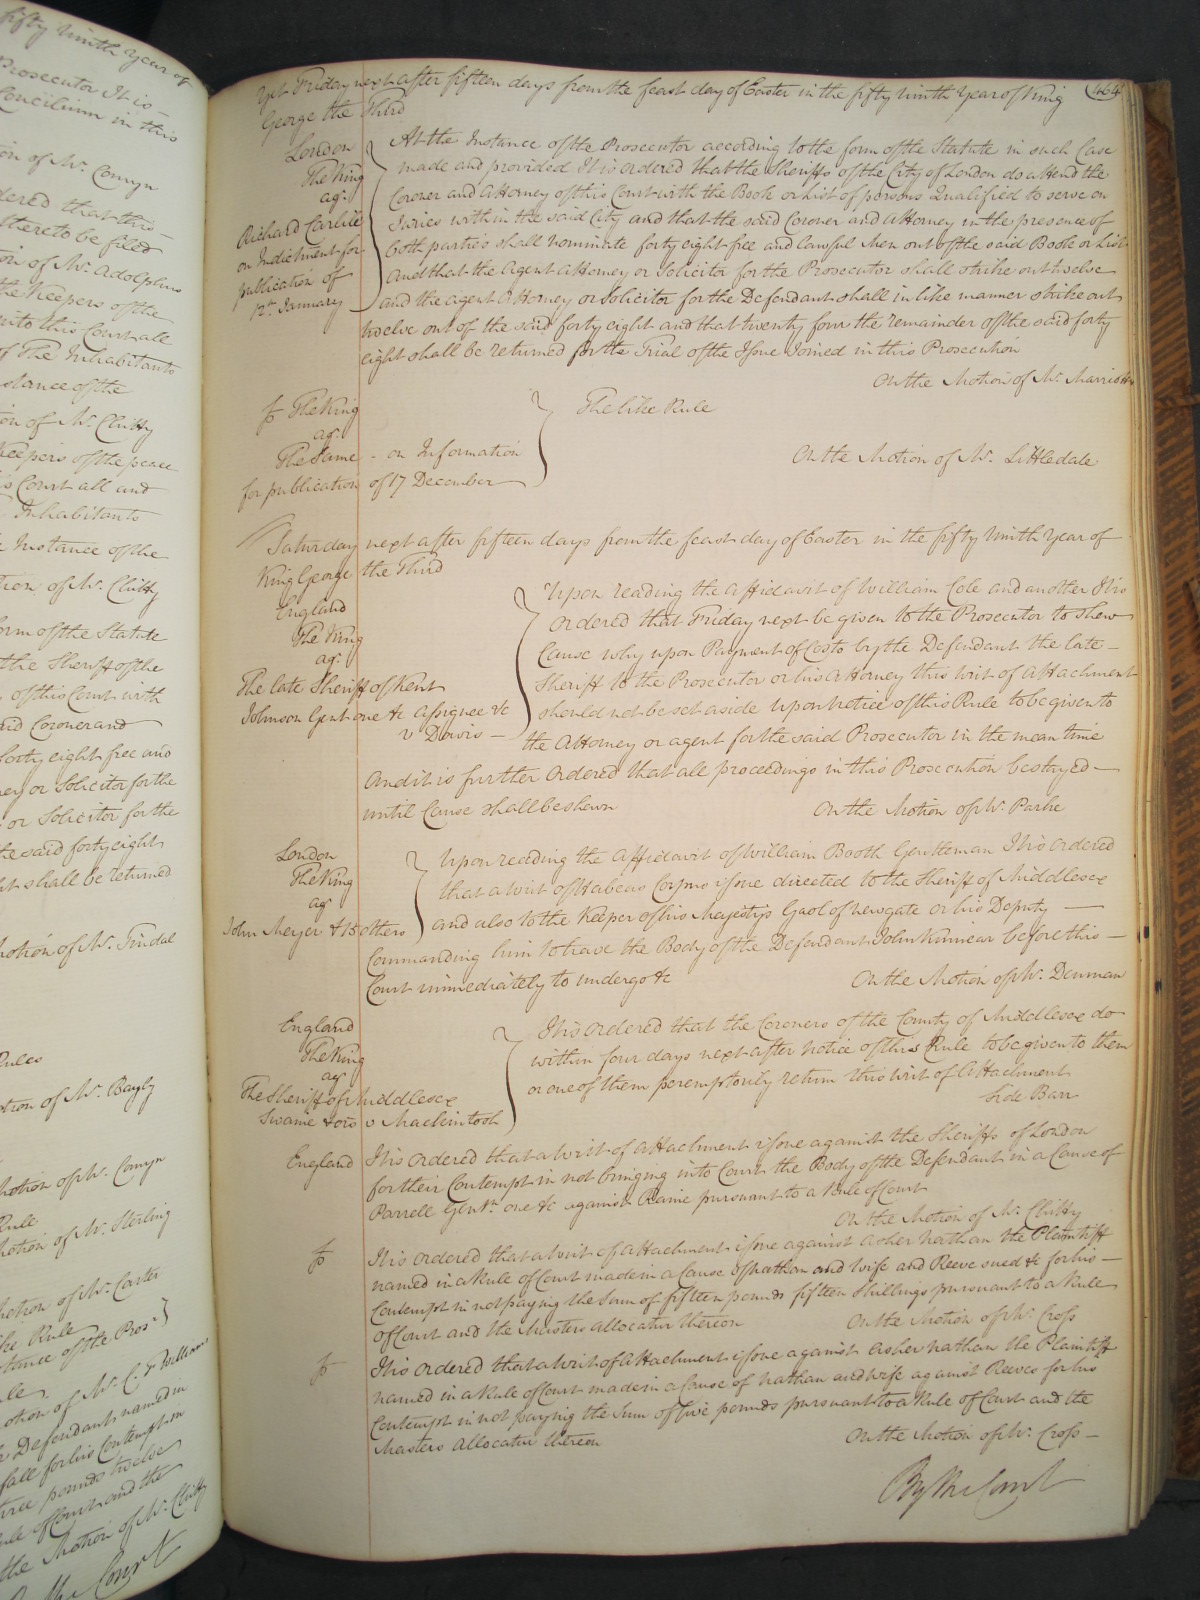 fifty Ninth Year of
Prosecutor It is
Concilium in this
on of Mr. Comyn
dered that this
thereto be filed
on of Mr. Adolphus
the Keepers of the
unto this Court all
of The Inhabitants
stance of the
on of Mr. Chitty
Keepers of the peace
s Court all and
Inhabitants
Instance of the
tion of Mr. Chitty
orm of the Statute
the Sheriff of the
of this Court with
aid Coroner and
forty eight free and
ney or Solicitor for the
or Solicitor for the
he said forty eight
ht shall be returned
Motion of Mr. Tindal
Rules
otion of Mr. Bayly
Motion of Mr. Comyn
Rule
Motion of Mr. Sterling
Motion of Mr. Carter
ike Rule
stance of the Prosr.
otion of Mr. C. F. Williams
Defendant named in
fall for his Contempt in
three pounds twelve
ule of Court and the
the Motion of Mr. Chitty
By the Court
464
Yet Friday next after fifteen days from the feast day of Easter in the fifty Ninth Year of King
George the Third
London
The King
agt.
Richard Carlile
on Indictment for
publication of
12th January
At the Instance of the Prosecutor according to the form of the Statute in such Case
made and provided It is ordered that the Sheriffs of the City of London do attend the
Coroner and Attorney of this Court with the Book or List of persons Qualified to serve on
Juries within the said City and that the said Coroner and Attorney in the presence of
both parties shall nominate forty eight free and lawful Men out of the said Book or List
And that the Agent Attorney or Solicitor for the Prosecutor shall strike out twelve
and the agent Attorney or Solicitor for the Defendant shall in like manner strike out
twelve out of the said forty eight and that twenty four the remainder of the said forty
eight shall be returned for the Trial of the Issue Joined in this Prosecution
On the Motion of Mr. Marriott
The King
agt.
The Same - on Information
for publication of 17 December
The like Rule
On the Motion of Mr. Littledale
Saturday next after fifteen days from the feast day of Easter in the fifty Ninth Year of
King George the Third
England
The King
agt.
The late Sheriff of Kent
Johnson Gent one &c assignee &c
v Davis
Upon reading the Affidavit of William Cole and another It is
ordered that Friday next be given to the Prosecutor to shew
Cause why upon Payment of Costs by the Defendant the late
Sheriff to the Prosecutor or his Attorney this writ of Attachment
should not be set aside upon notice of this Rule to be given to
the Attorney or agent for the said Prosecutor in the mean time
And it is further Ordered that all proceedings in this Prosecution be stayed
until Cause shall be shewn
On the Motion of Mr. Parke
London
The King
agt
John Meyer & 15 others
Upon reading the Affidavit of William Booth Gentleman It is ordered
that a writ of Habeas Corpus issue directed to the Sheriff of Middlesex
and also to the Keeper of his Majestys Gaol of Newgate or his Deputy
Commanding him to have the Body of the Defendant John Kinnear before this
Court immediately to undergo &c
On the Motion of Mr. Denman
England
The King
agt
The Sheriff of Middlesex
Swaine & ors v Mackintosh
It is ordered that the Coroners of the County of Middlesex do
within four days next after notice of this Rule to be given to them
or one of them peremptorily return this writ of Attachment
Side Barr
England
It is ordered that a writ of Attachment issue against the Sheriffs of London
for their Contempt in not bringing into Court the Body of the Defendant in a Cause of
Parrell Gent. one &c against Raine pursuant to a Rule of Court
On the Motion of Mr. Chitty
It is ordered that a writ of Attachment issue against Asher Nathan the Plaintiff
named in a Rule of Court made in a Cause of Nathan and wife and Reeve sued &c for his
Contempt in not paying the Sum of fifteen pounds fifteen Shillings pursuant to a Rule
of Court and the Masters Allocatur thereon
On the Motion of Mr. Cross
It is ordered that a writ of Attachment issue against Asher Nathan the Plaintiff
named in a Rule of Court made in a Cause of Nathan and wife against Reeves for his
Contempt in not paying the Sum of five pounds pursuant to a Rule of Court and the
Masters Allocatur thereon
On the Motion of Mr. Cross
By the Court